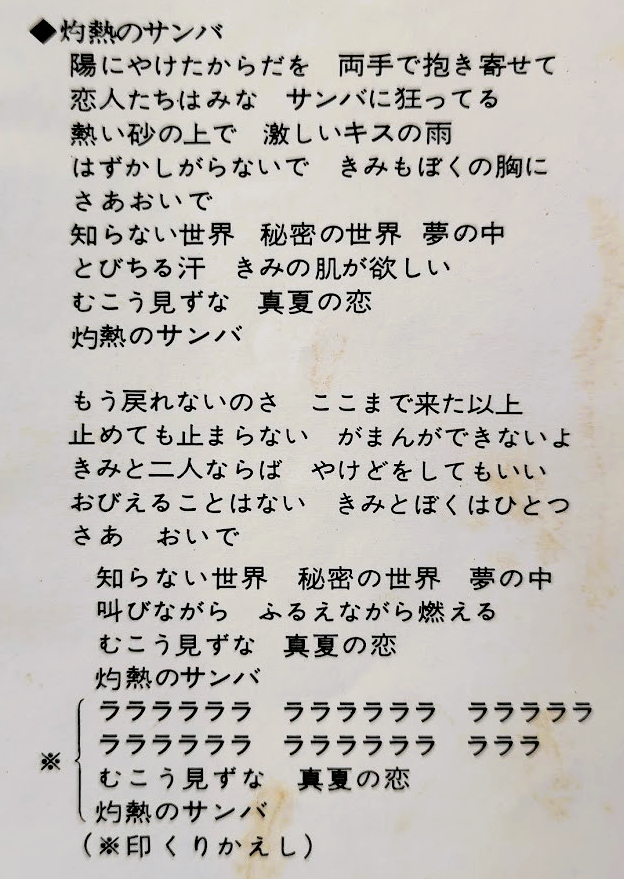 ◆灼熱のサンバ
陽にやけたからだを　両手で抱き寄せて
恋人たちはみな　サンバに狂ってる
熱い砂の上で　激しいキスの雨
はずかしがらないで　きみもぼくの胸に
さあおいで
知らない世界　秘密の世界　夢の中
とびちる汗　きみの肌が欲しい
むこう見ずな　真夏の恋
灼熱のサンバ
もう戻れないのさ　ここまで来た以上
止めても止まらない　がまんができないよ
きみと二人ならば　やけどをしてもいい
おびえることはない　きみとぼくはひとつ
さあ　おいで
知らない世界　秘密の世界　夢の中
叫びながら　ふるえながら燃える
むこう見ずな　真夏の恋
灼熱のサンバ
ララララララ　ララララララ　ラララララ
※ ララララララ　ララララララ　ラララ
むこう見ずな　真夏の恋
灼熱のサンバ
（※印くりかえし）